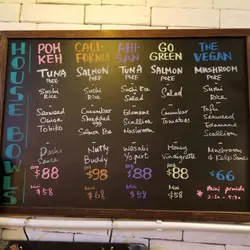 HOUSE BOWLS
POH KEH
TUNA
POKE
Sushi
Rice
Seaweed
Onion
Tobiko
Dashi
Sauce
$88
Mini
$58
CALIFORNIA
SALMON
POKE
Sushi
Rice
Cucumber
Shredded
egg
Salmon Roe
Nutty
Buddy
$98
Mini
$68
AHI-SAN
TUNA
POKE
Sushi Rice
Salad
Edamame
Scallion
Mushroom
Wasabi
Yogurt
$88
Mini
$58
GO GREEN
SALMON
POKE
Sushi
Salad
Cucumber
Tomatoes
Honey
Vinaigrette
$88
Mini
$58
THE VEGAN
MUSHROOM
POKE
Sushi
Rice
Seaweed
Edamame
Scallion
Mushroom
& Kelp Sauce
$66
* Mini poké
2:30 - 5:30